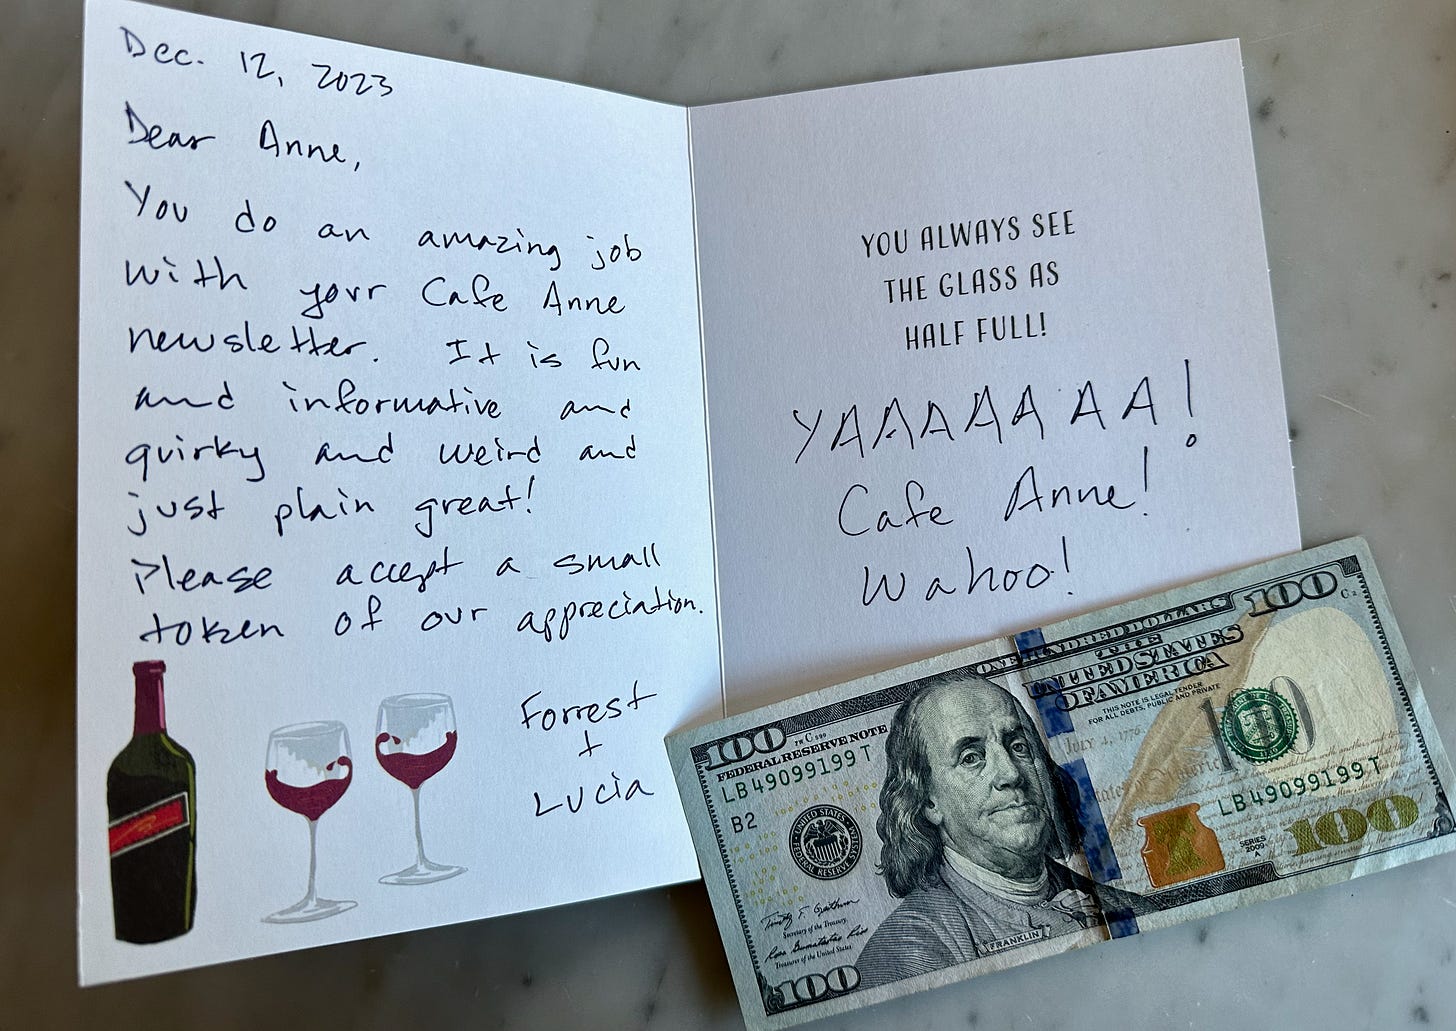 Dec. 12, 2023
Dear Anne,
You do an amazing job
with your Cafe Anne
newsletter. It is fun
and informative and
quirky and weird and
just plain great!
Please accept a small
token of our appreciation.
Forrest
+
Lucia
YOU ALWAYS SEE
THE GLASS AS
HALF FULL!
YAAAAAAA!
Cafe Anne!
Wahoo!
100
FEDERAL RESERVE NOTE
LB49099199T
B2
UNITED STATES FEDERAL RESERVE SYSTEM
Secretary of the Treasury.
Treasurer of the United States.
100
FRANKLIN
ONE HUNDRED DOLLARS
THE
UNITED STATES
OF AMERICA
THIS NOTE IS LEGAL TENDER
FOR ALL DEBTS, PUBLIC AND PRIVATE
July 4, 1776
100
LB49099199T
SERIES
2009
A
100